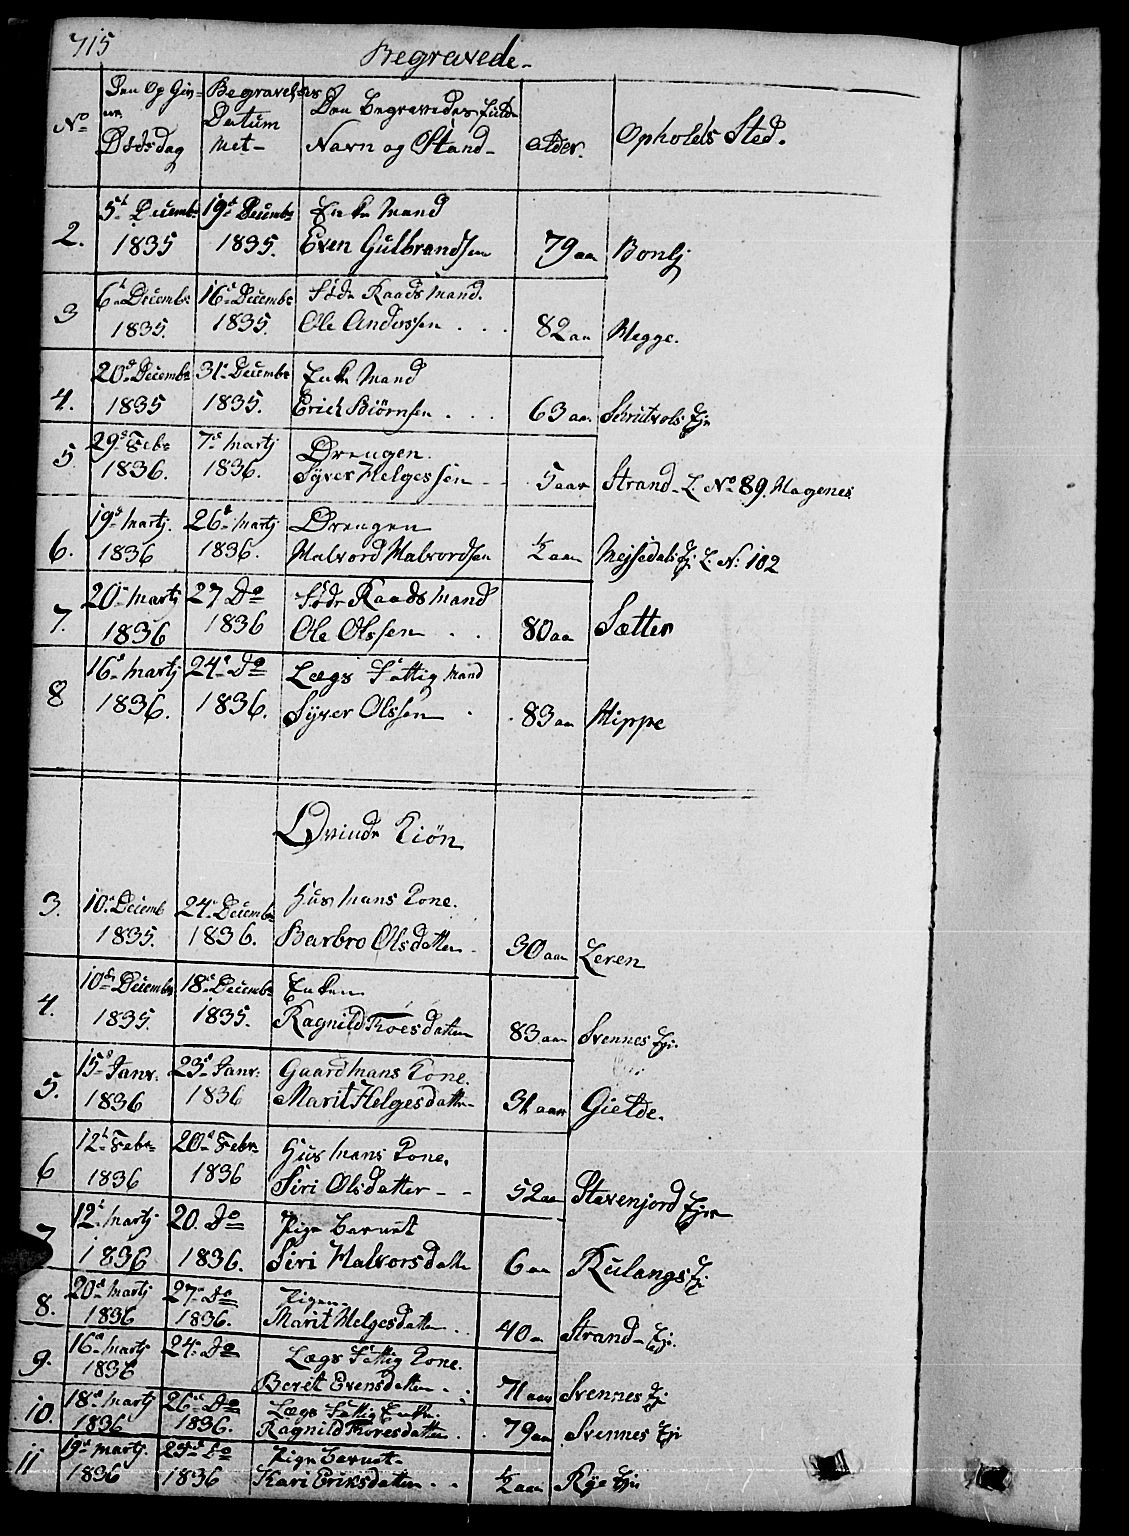 715
Begravede
No
Den Op Giv-
ne
Dødsdag
Begravelses
Datum
Den Begravedes fulde
Navn og Stand
Alder.
Opholds Sted.
2.
5t Decembr 1835
19d Decembr 1835.
Enke Mand
Even Gulbrandsen
79 aar
3
6t Decembr 1835.
16d Decembr 1835.
Føde Raads Mand.
Ole Anderssen
82 aar
Hegge.
4.
20d Decembr 1835
31d Decembr 1835.
Enke Mand
Erich Biørnsen
63 aar
5
29d Febr 1836.
7d Martj 1836.
Drengen.
Syver Helgessen
5 aar
Strand L. No 89. Hagenes
6.
19d Martj. 1836
26d Martj 1836.
Drengen
Halvord Halvordsen
½ aar
Ejr L. N: 102
7.
20d Martj 1836
27 Do 1836
Føde Raads Mand
Ole Olssen
80 aar
Sætter
8
16d Martj 1836.
24d Do 1836.
Lægs Fattig Mand
Syver Olssen
83 aar
Hippe
Qvinde Kiøn
3.
10d Decemb 1835.
24d Decembr 1836.
Hus Mans Kone.
Barbro Olsdatter
30 aar
Leren
4.
10d Decembr 1835.
18d Decembr 1835.
Enken
Ragnild Thoesdatter
83 aar
Svennes Ejr.
5.
15d Janr. 1836
23d Janr. 1836
Gaard Mans Kone.
Marit Helgesdatter
31 aar
Gielde.
6
12t Febr 1836
20d Febr 1836
Hus Mans Kone.
Siri Olsdatter
52 aar
Stavenjord Ejr
7
12t Martj 1836
20. Do 1836.
Pige Barnet
Siri Halvorsdatter
6 aar
Rulangs Ej
8.
20d Martj 1836
27d Do 1836.
Pigen
Marit Helgesdatter
40
Strand Ejr.
9.
16d Martj 1836
24d Do
Lægs Fattig Kone.
Berit Evensdatter
71 aar
Svennes Ej
10.
18d Martj 1836
26d Do 1836.
Lægs Fattig Enke
Ragnild Thoresdatter
79 aar
Svennes Ejr
11
19d Martj. 1836
25d Do 1836
Pige Barnet
Kari Eriksdatter
½ aar
Rye Ejr